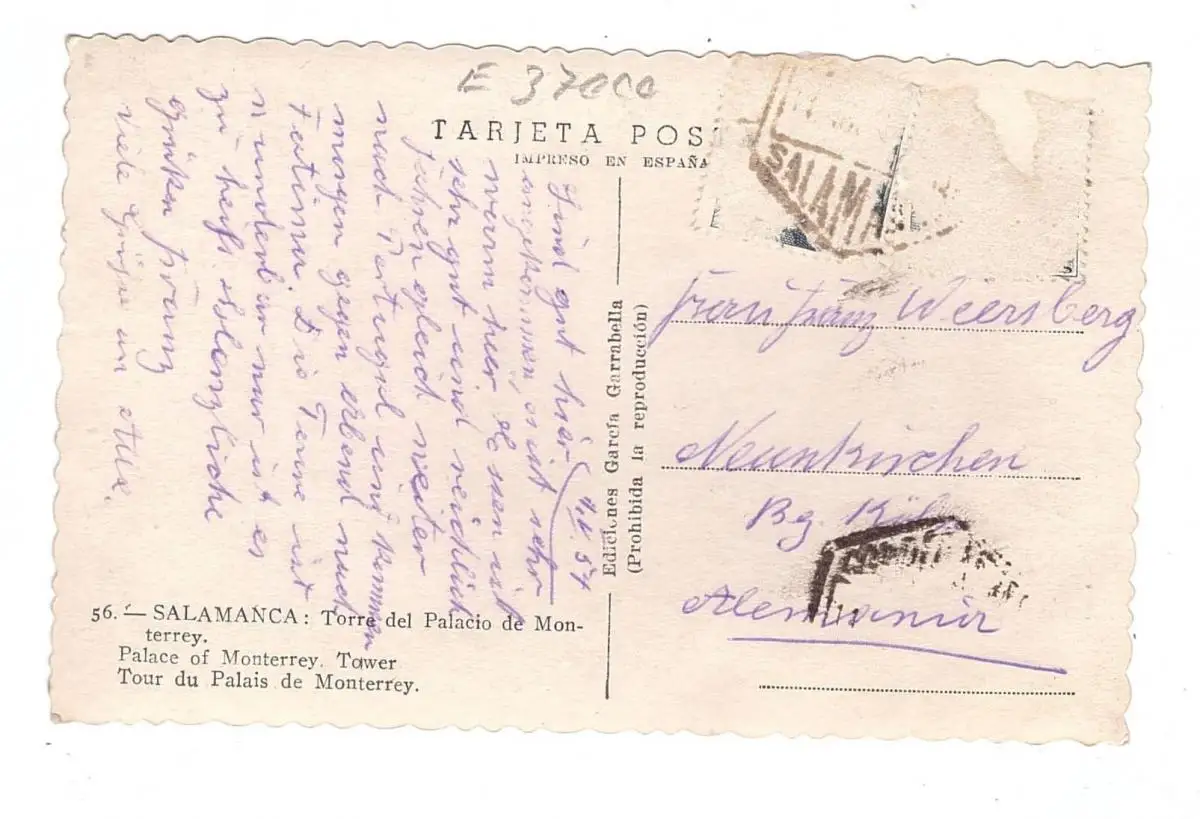 E 37000
TARJETA POST
IMPRESO EN ESPAÑA
SALAMA
Sind gut hier
angekommen, es ist sehr
warm hier. Essen ist
sehr gut und reichlich
fahren gleich weiter
nach Portugal und kommen
morgen gegen abend nach
Fatima. Die Reise ist
wunderbar nur ist es
zu heiß. Herzliche
Grüße
viele Grüße an Alle.
4.V.54
Ediciones García Garrabella
(Prohibida la reproducción)
Frau Franz Weersberg
Neunkirchen
Bg. Köln
Alemania
56. — SALAMANCA: Torre del Palacio de Mon-
terrey.
Palace of Monterrey. Tower
Tour du Palais de Monterrey.